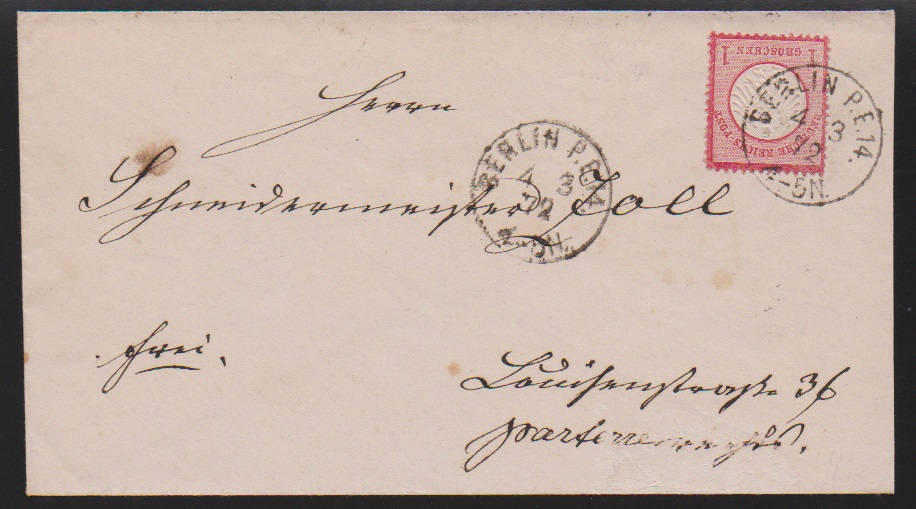 1 GROSCHEN 1
DEUTSCHE REICHS-POST
BERLIN P.E.14.
4 3
72
4-5N.
Herrn
BERLIN P.E.14.
4 3
72
4-5N.
Schneidermeister Zoll
frei.
Louisenstraße 36
parterre